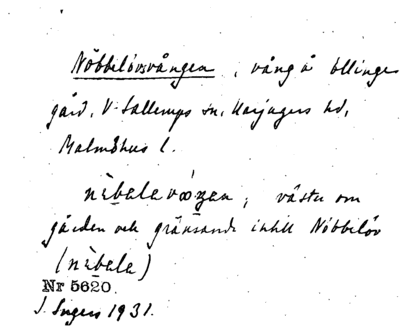 Nöbbilövsvången, vång å Ellinge
gård, V. Sallerups sn, Harjagers hd,
Malmöhus l.
nèbalavåŋan, väster om
gården och gränsande intill Nöbbelöv
(nèbala)
Nr 5620.
J. Ingers 1931.